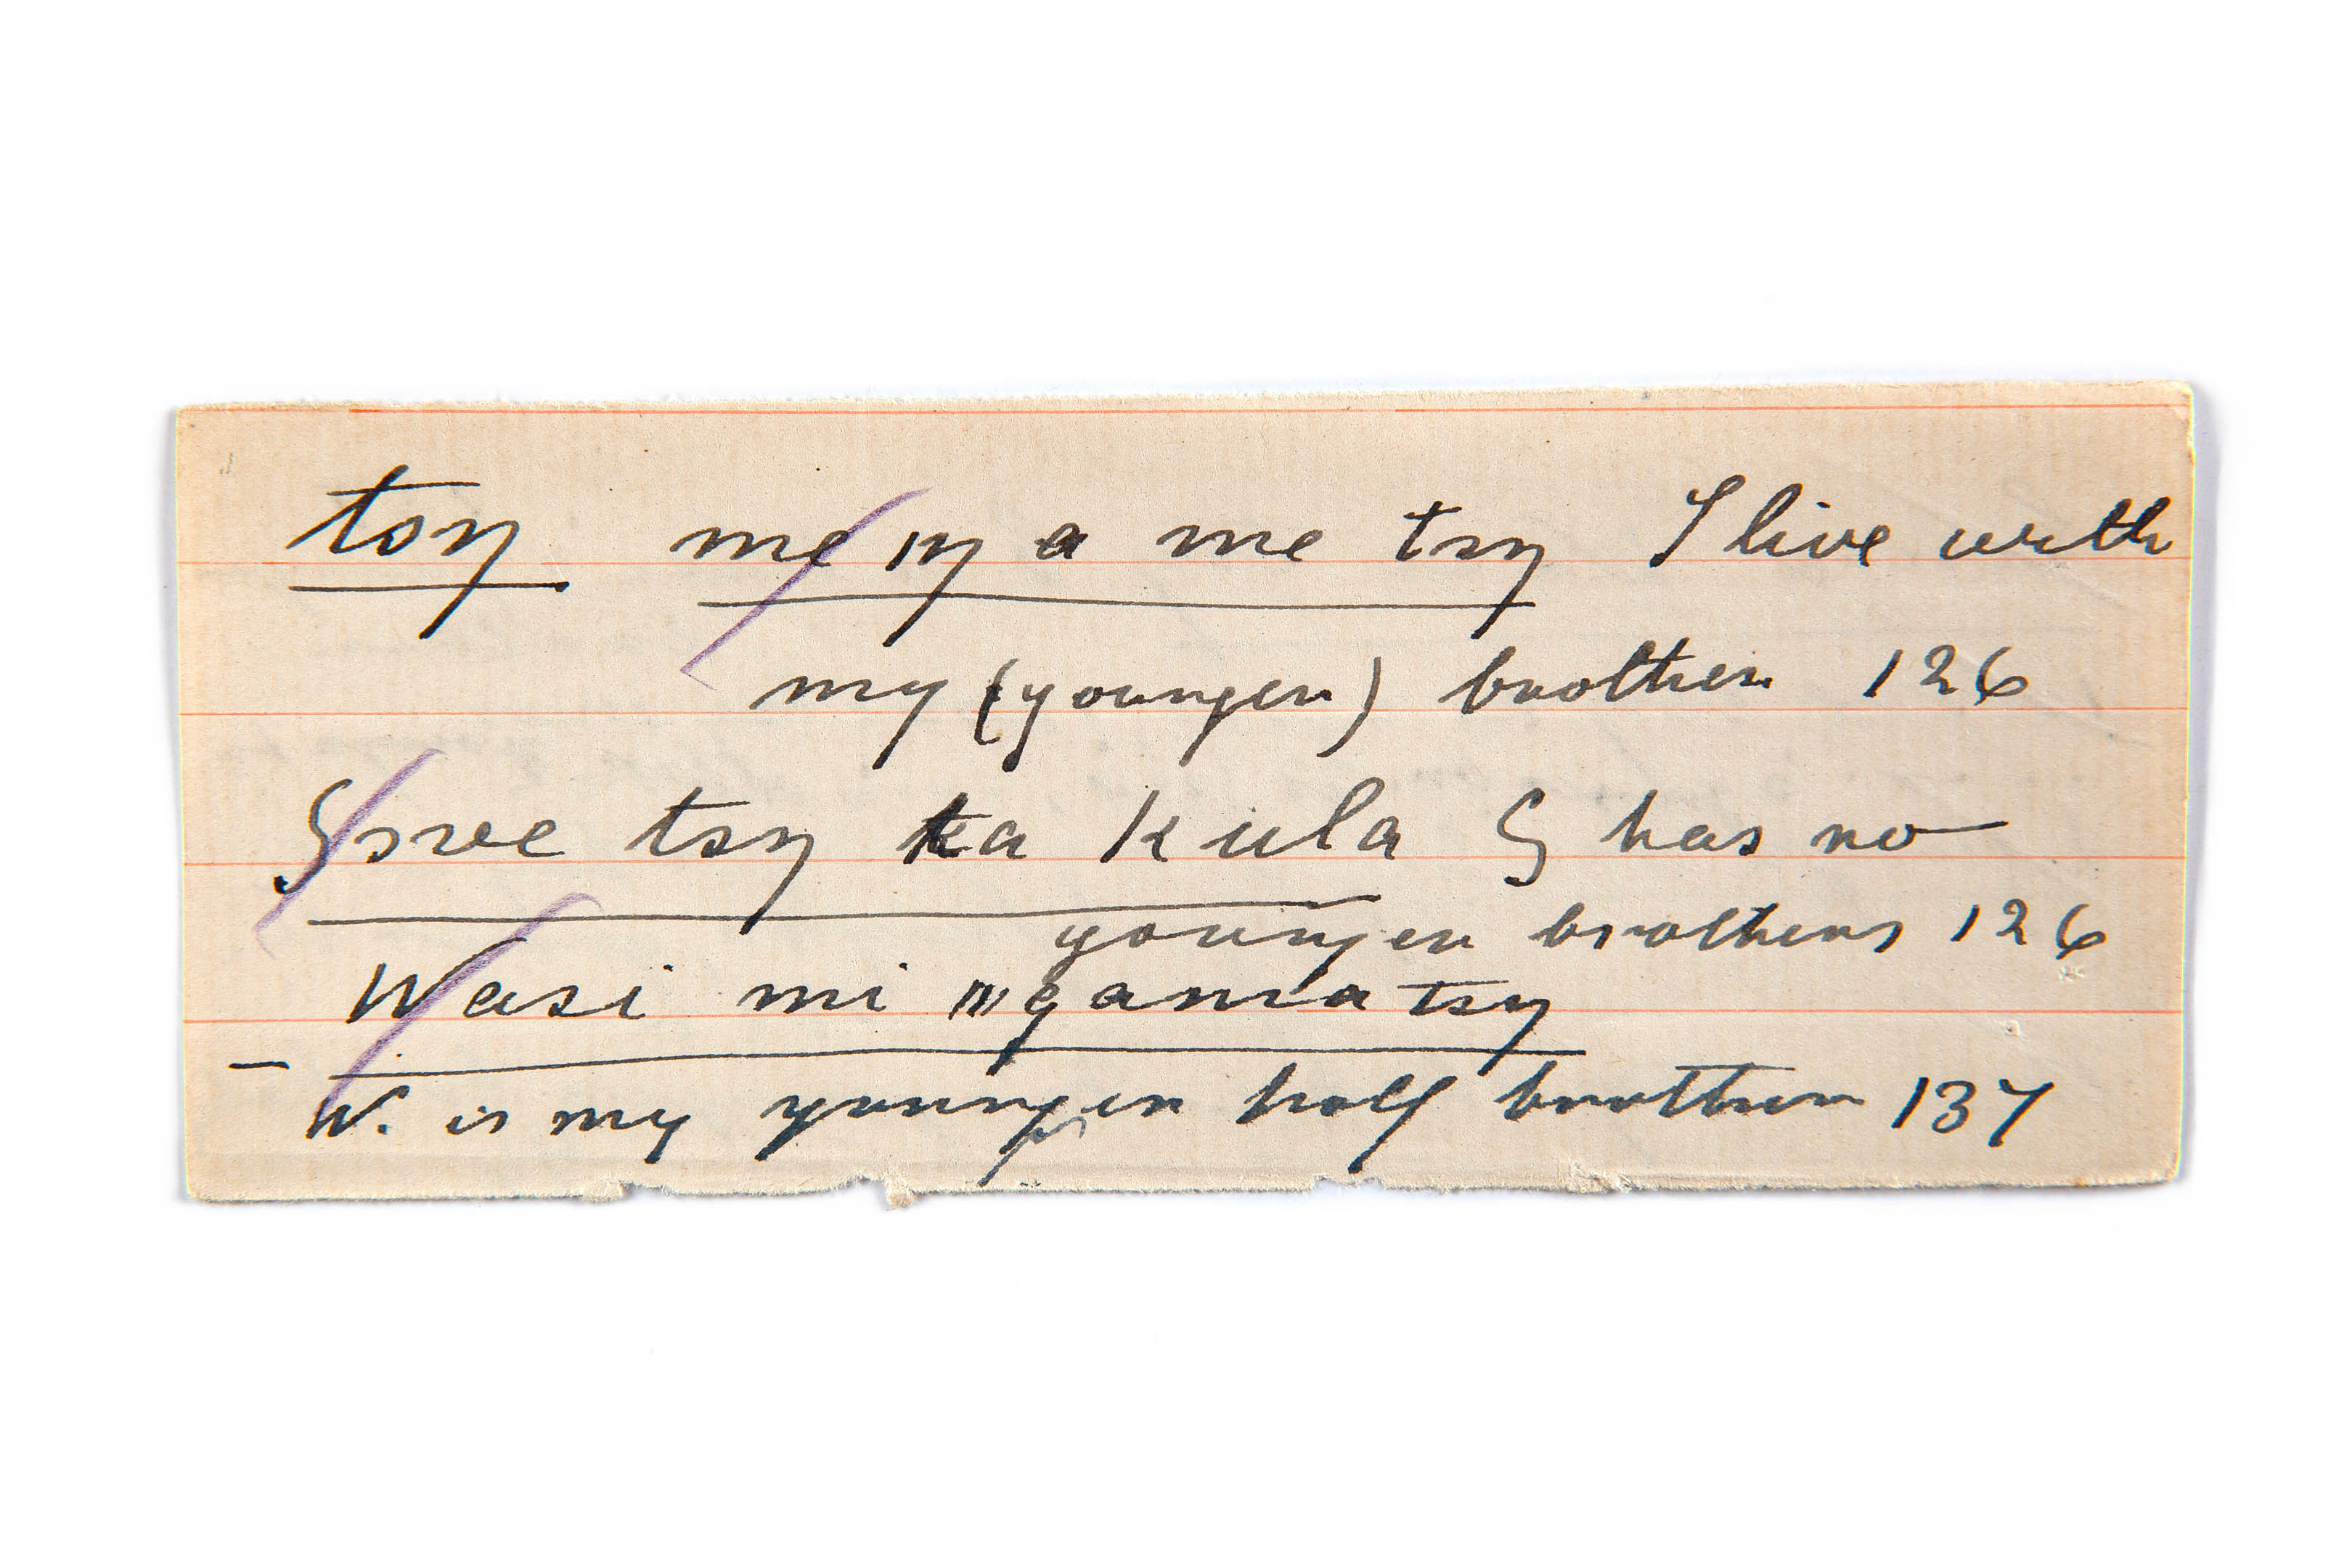 toŋ me ŋ a me toŋ I live with
my (younger) brother 126
Sove toŋ ka kula S has no
younger brothers 126
Wasi mi ngania toŋ
– W. is my younger half brother 137